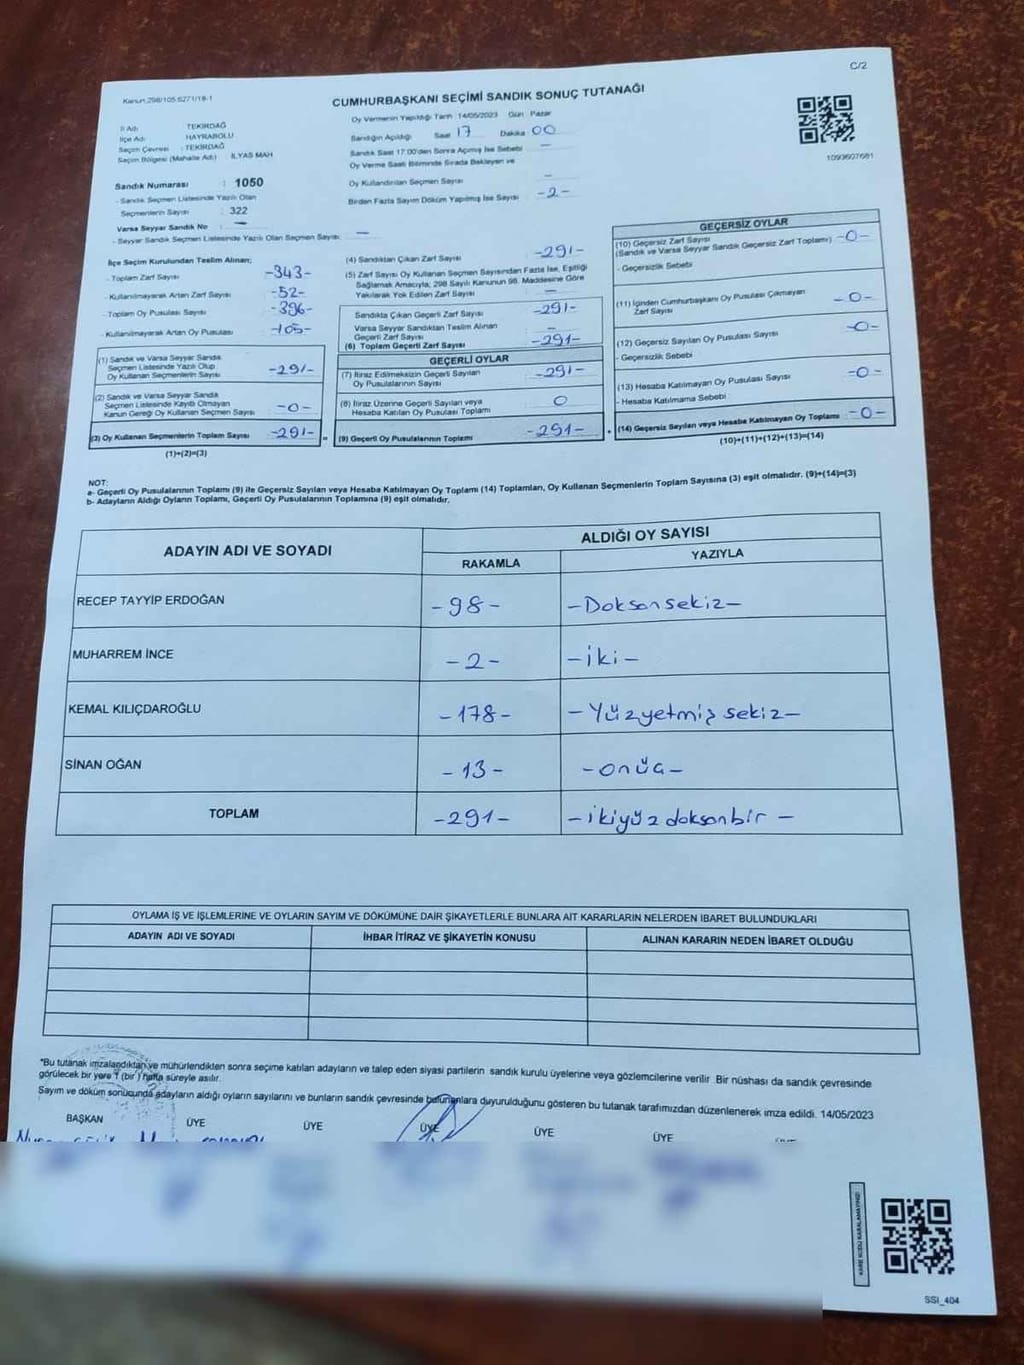 Kanun:298/105.6271/18-1
C/2
CUMHURBAŞKANI SEÇİMİ SANDIK SONUÇ TUTANAĞI
İl Adı TEKİRDAĞ
İlçe Adı HAYRABOLU
Seçim Çevresi : TEKİRDAĞ
Seçim Bölgesi (Mahalle Adı) İLYAS MAH
Sandık Numarası : 1050
- Sandık Seçmen Listesinde Yazılı Olan
Seçmenlerin Sayısı : 322
Varsa Seyyar Sandık No : —
- Seyyar Sandık Seçmen Listesinde Yazılı Olan Seçmen Sayısı: —
Oy Vermenin Yapıldığı Tarih 14/05/2023 Gün Pazar
Sandığın Açıldığı Saat 17 Dakika 00
Sandık Saat 17:00'den Sonra Açılmış İse Sebebi —
Oy Verme Saati Bitiminde Sırada Bekleyen ve
Oy Kullandırılan Seçmen Sayısı —
Birden Fazla Sayım Döküm Yapılmış İse Sayısı -2-
1093607681
İlçe Seçim Kurulundan Teslim Alınan;
- Toplam Zarf Sayısı -343-
- Kullanılmayarak Artan Zarf Sayısı -52-
- Toplam Oy Pusulası Sayısı -396-
- Kullanılmayarak Artan Oy Pusulası -105-
(1) Sandık ve Varsa Seyyar Sandık
Seçmen Listesinde Yazılı Olup
Oy Kullanan Seçmenlerin Sayısı -291-
(2) Sandık ve Varsa Seyyar Sandık
Seçmen Listesinde Kayıtlı Olmayan
Kanun Gereği Oy Kullanan Seçmen Sayısı -0-
(3) Oy Kullanan Seçmenlerin Toplam Sayısı -291- =
(1)+(2)=(3)
(4) Sandıktan Çıkan Zarf Sayısı -291-
(5) Zarf Sayısı Oy Kullanan Seçmen Sayısından Fazla İse, Eşitliği
Sağlamak Amacıyla; 298 Sayılı Kanunun 98. Maddesine Göre
Yakılarak Yok Edilen Zarf Sayısı —
Sandıkta Çıkan Geçerli Zarf Sayısı -291-
Varsa Seyyar Sandıktan Teslim Alınan
Geçerli Zarf Sayısı —
(6) Toplam Geçerli Zarf Sayısı -291-
GEÇERLİ OYLAR
(7) İtiraz Edilmeksizin Geçerli Sayılan
Oy Pusulalarının Sayısı -291-
(8) İtiraz Üzerine Geçerli Sayılan veya
Hesaba Katılan Oy Pusulası Toplamı 0
(9) Geçerli Oy Pusulalarının Toplamı -291- +
GEÇERSİZ OYLAR
(10) Geçersiz Zarf Sayısı
(Sandık ve Varsa Seyyar Sandık Geçersiz Zarf Toplamı) -0-
- Geçersizlik Sebebi
(11) İçinden Cumhurbaşkanı Oy Pusulası Çıkmayan
Zarf Sayısı -0-
(12) Geçersiz Sayılan Oy Pusulası Sayısı -0-
- Geçersizlik Sebebi
(13) Hesaba Katılmayan Oy Pusulası Sayısı -0-
- Hesaba Katılmama Sebebi
(14) Geçersiz Sayılan veya Hesaba Katılmayan Oy Toplamı -0-
(10)+(11)+(12)+(13)=(14)
NOT:
a- Geçerli Oy Pusulalarının Toplamı (9) ile Geçersiz Sayılan veya Hesaba Katılmayan Oy Toplamı (14) Toplamları, Oy Kullanan Seçmenlerin Toplam Sayısına (3) eşit olmalıdır. (9)+(14)=(3)
b- Adayların Aldığı Oyların Toplamı, Geçerli Oy Pusulalarının Toplamına (9) eşit olmalıdır.
ADAYIN ADI VE SOYADI
ALDIĞI OY SAYISI
RAKAMLA YAZIYLA
RECEP TAYYİP ERDOĞAN -98- -Doksansekiz-
MUHARREM İNCE -2- -iki-
KEMAL KILIÇDAROĞLU -178- -Yüzyetmiş sekiz-
SİNAN OĞAN -13- -onüç-
TOPLAM -291- -ikiyüzdoksanbir-
OYLAMA İŞ VE İŞLEMLERİNE VE OYLARIN SAYIM VE DÖKÜMÜNE DAİR ŞİKAYETLERLE BUNLARA AİT KARARLARIN NELERDEN İBARET BULUNDUKLARI
ADAYIN ADI VE SOYADI İHBAR İTİRAZ VE ŞİKAYETİN KONUSU ALINAN KARARIN NEDEN İBARET OLDUĞU
*Bu tutanak imzalandıktan ve mühürlendikten sonra seçime katılan adayların ve talep eden siyasi partilerin sandık kurulu üyelerine veya gözlemcilerine verilir. Bir nüshası da sandık çevresinde
görülecek bir yere 1 (bir) hafta süreyle asılır.
Sayım ve döküm sonucunda adayların aldığı oyların sayılarını ve bunların sandık çevresinde bulunanlara duyurulduğunu gösteren bu tutanak tarafımızdan düzenlenerek imza edildi. 14/05/2023
BAŞKAN ÜYE ÜYE ÜYE ÜYE ÜYE
KARE KODU KARALAMAYINIZ!
SSI_404